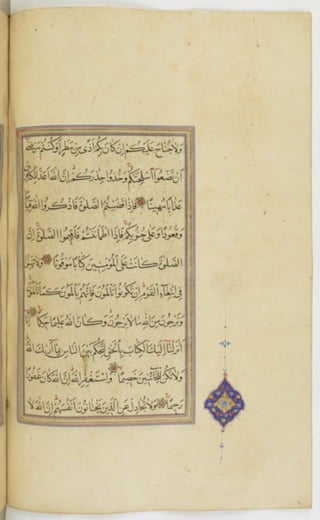 ولا جناح عليكم إن كان بكم أذى من مطر أو كنتم مرضى
أن تضعوا أسلحتكم وخذوا حذركم إن الله أعد للكافرين
عذابا مهينا فإذا قضيتم الصلوة فاذكروا الله قياما
وقعودا وعلى جنوبكم فإذا اطمأننتم فأقيموا الصلوة إن
الصلوة كانت على المؤمنين كتابا موقوتا ولا تهنوا
في ابتغاء القوم إن تكونوا تألمون فإنهم يألمون كما تألمون
وترجون من الله ما لا يرجون وكان الله عليما حكيما إنا
أنزلنا إليك الكتاب بالحق لتحكم بين الناس بما أريك الله
ولا تكن للخائنين خصيما واستغفر الله إن الله كان غفورا
رحيما ولا تجادل عن الذين يختانون أنفسهم إن الله لا